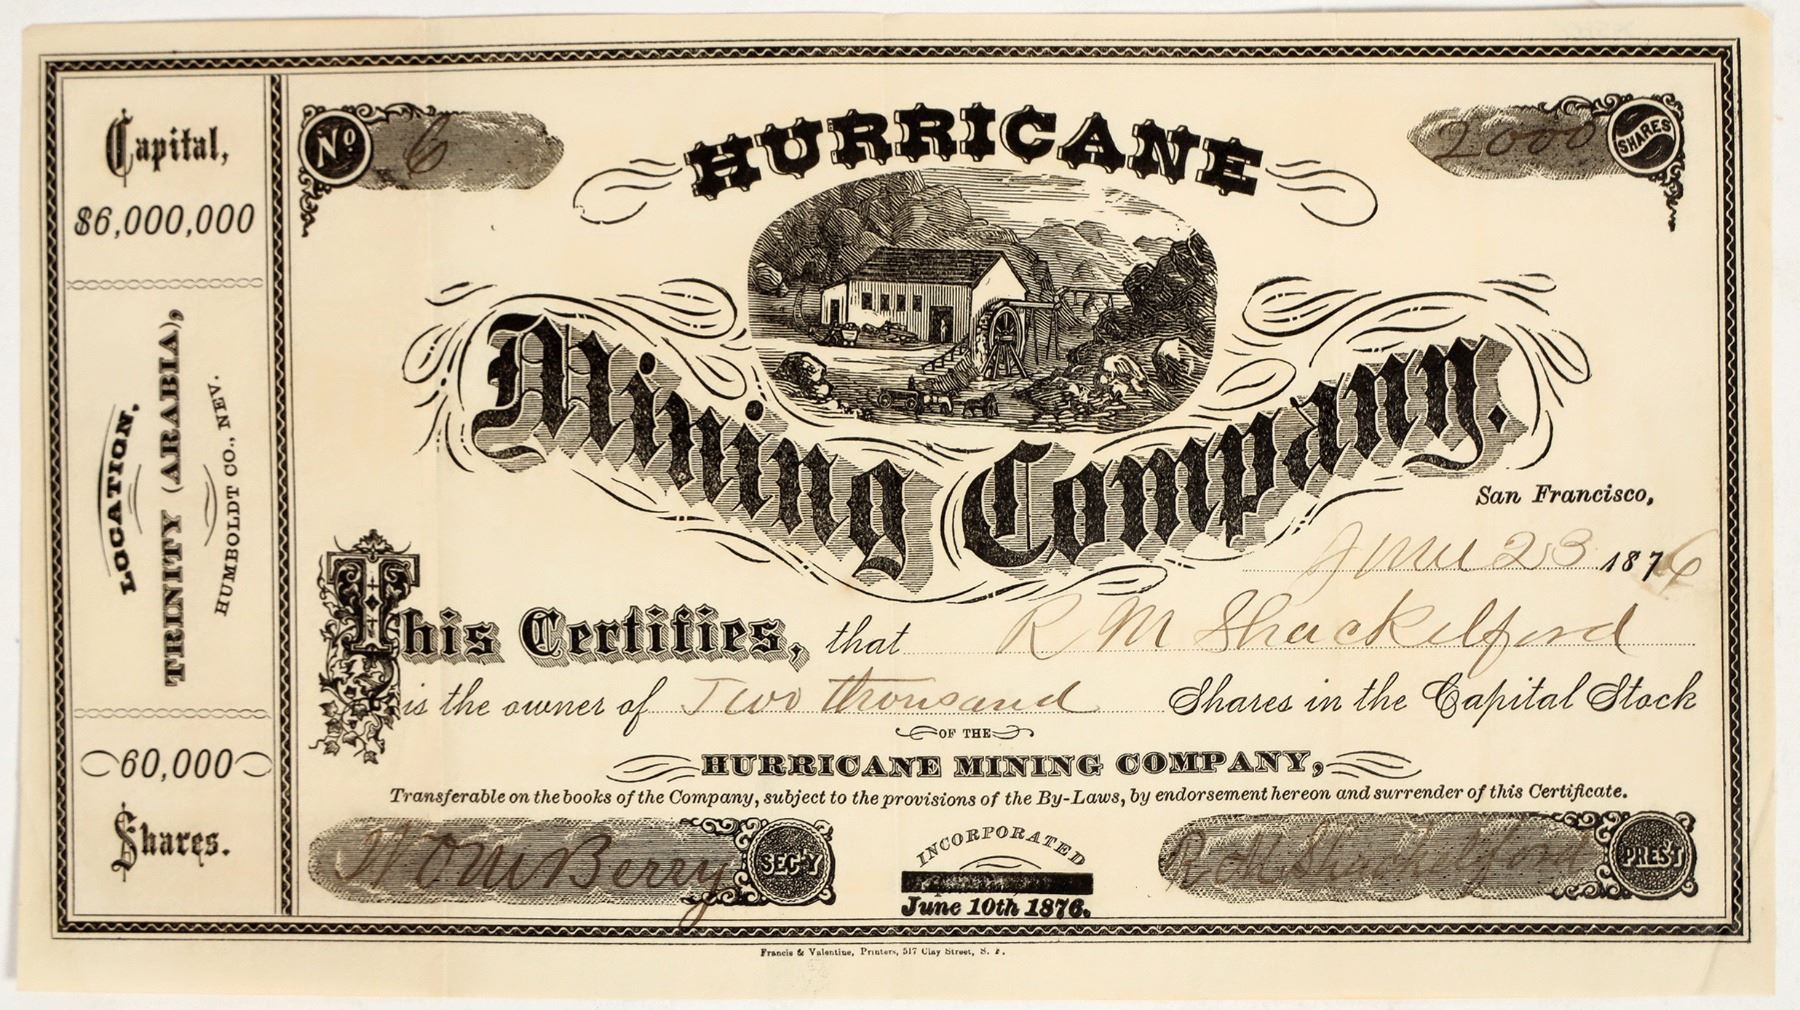 Capital,
$6,000,000
LOCATION,
TRINITY (ARABIA),
HUMBOLDT CO., NEV.
60,000
Shares.
No 6
2000 SHARES
HURRICANE
Mining Company.
San Francisco,
June 23 1876
This Certifies, that R M Shackelford
is the owner of Two thousand Shares in the Capital Stock
OF THE
HURRICANE MINING COMPANY,
Transferable on the books of the Company, subject to the provisions of the By-Laws, by endorsement hereon and surrender of this Certificate.
W O M Berry SEC'Y
INCORPORATED
June 10th 1876.
R M Shackelford PREST
Francis & Valentine, Printers, 517 Clay Street, S. F.